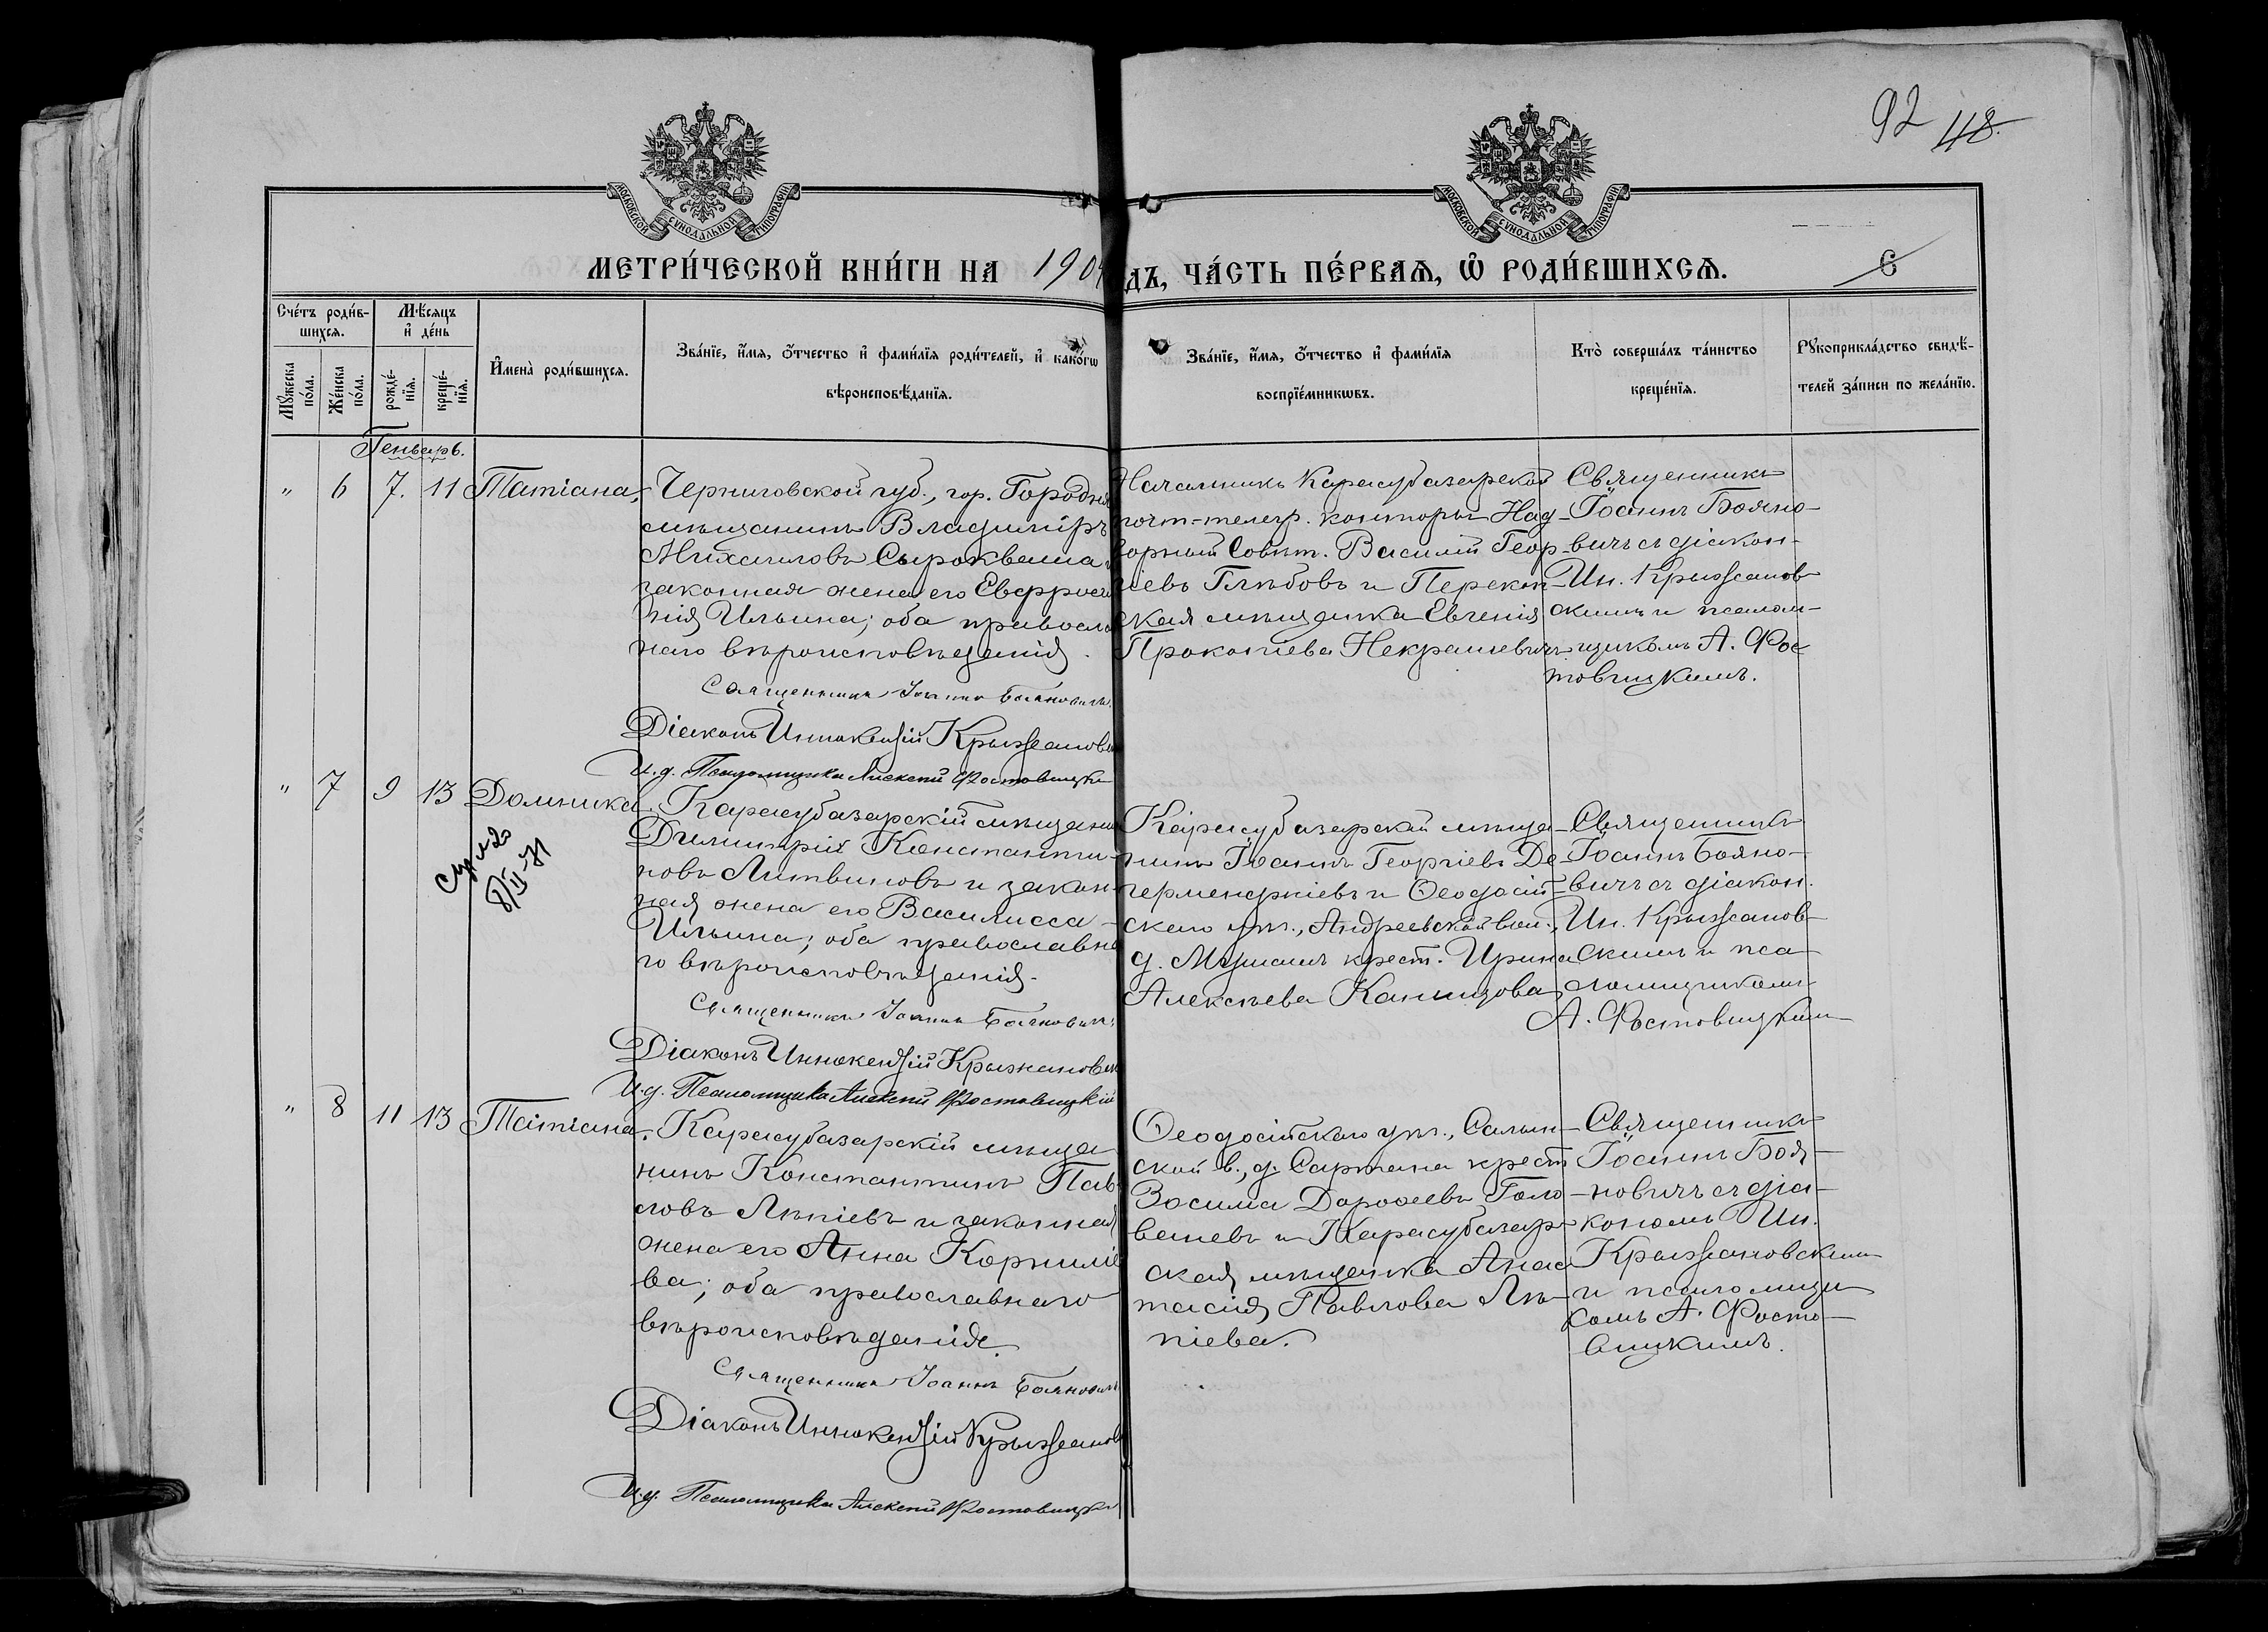 92 48.
МОСКОВСКОЙ СѴНОДАЛЬНОЙ ТИПОГРАФІИ
МОСКОВСКОЙ СѴНОДАЛЬНОЙ ТИПОГРАФІИ
МЕТРИ́ЧЕСКОЙ КНИ́ГИ НА 190
ДЪ, ЧА́СТЬ ПЕ́РВАѦ, Ѡ҆ РОДИ́ВШИХСѦ.
Сче́тъ роди́в-
шихсѧ.
Мꙋ́жеска по́ла.
Же́нска по́ла.
Мѣ́сѧцъ
и҆ де́нь
рожде́-нїѧ.
креще́-нїѧ.
И҆мена̀ роди́вшихсѧ.
Зва́нїе, и҆́мѧ, ѻ҆́тчество и҆ фами́лїѧ роди́телей, и҆ како́гѡ
вѣроисповѣ́данїѧ.
Зва́нїе, и҆́мѧ, ѻ҆́тчество и҆ фами́лїѧ
воспрїе́мникѡвъ.
Кто̀ соверша́лъ та́инство
креще́нїѧ.
Рꙋкоприкла́дство свидѣ́-
телей за́писи по жела́нїю.
Генварь.
" 6 7. 11 Татіана,
Черниговской губ., гор. Городня
мѣщанинъ Владиміръ
Михаиловъ Сыроквашa и
законная жена его Евфроси
нія Ильина; оба правосла
наго вѣроисповѣданія.
Священникъ Іоаннъ Бояновичъ.
Діаконъ Иннокентій Крыжановск
И.д. Псаломщика Алексій Фостовицкі
Начальникъ Карасубазарской
почт-телегр. конторы Над-
ворный Совѣт. Василій Геор
гіевъ Глѣбовъ и Перекоп-
ская мѣщанка Евгенія
Прокопіева Некрашевичъ
Священникъ
Іоаннъ Бояно-
вичъ съ діакон-
Ин. Крыжанов
скимъ и псалом-
щикомъ А. Фос
товицкимъ.
" 7 9 13 Домника.
Карасубазарскій мѣщани
Димитрій Константи-
новъ Литвиновъ и закон
ная жена его Василисса
Ильина; оба православна
го вѣроисповѣданія.
Священникъ Іоаннъ Бояновичъ.
Діаконъ Иннокентій Крыжановск
И.д. Псаломщика Алексій Фостовицкій
Карасубазарскій мѣща-
нинъ Іоаннъ Георгіевъ Де-
герменджіевъ и Ѳеодосій-
скаго уѣз., Андреевской вол.,
крест. Ирина
Алексѣева
Священникъ
Іоаннъ Бояно-
вичъ съ діакон.
Ин. Крыжанов
скимъ и пса
ломщикомъ
А. Фостовицкимъ
" 8 11 13 Татіана.
Карасубазарскій мѣща
нинъ Константинъ Пав
ловъ Лѣпіевъ и законная
жена его Анна Корниліе
ва; оба православнаго
вѣроисповѣданія.
Священникъ Іоаннъ Бояновичъ
Діаконъ Иннокентій Крыжанов
И.д. Псаломщика Алексій Фостовицкі
Ѳеодосійскаго уѣз., Салын-
ской в., д. Сартана крест
Зосима Дороѳеевъ
и Карасубазар-
ская мѣщанка Анас
тасія Павлова Лѣ-
піева.
Священникъ
Іоаннъ Боя-
новичъ съ діа-
кономъ Ин.
Крыжановскимъ
и псаломщи
комъ А. Фосто-
вицкимъ.